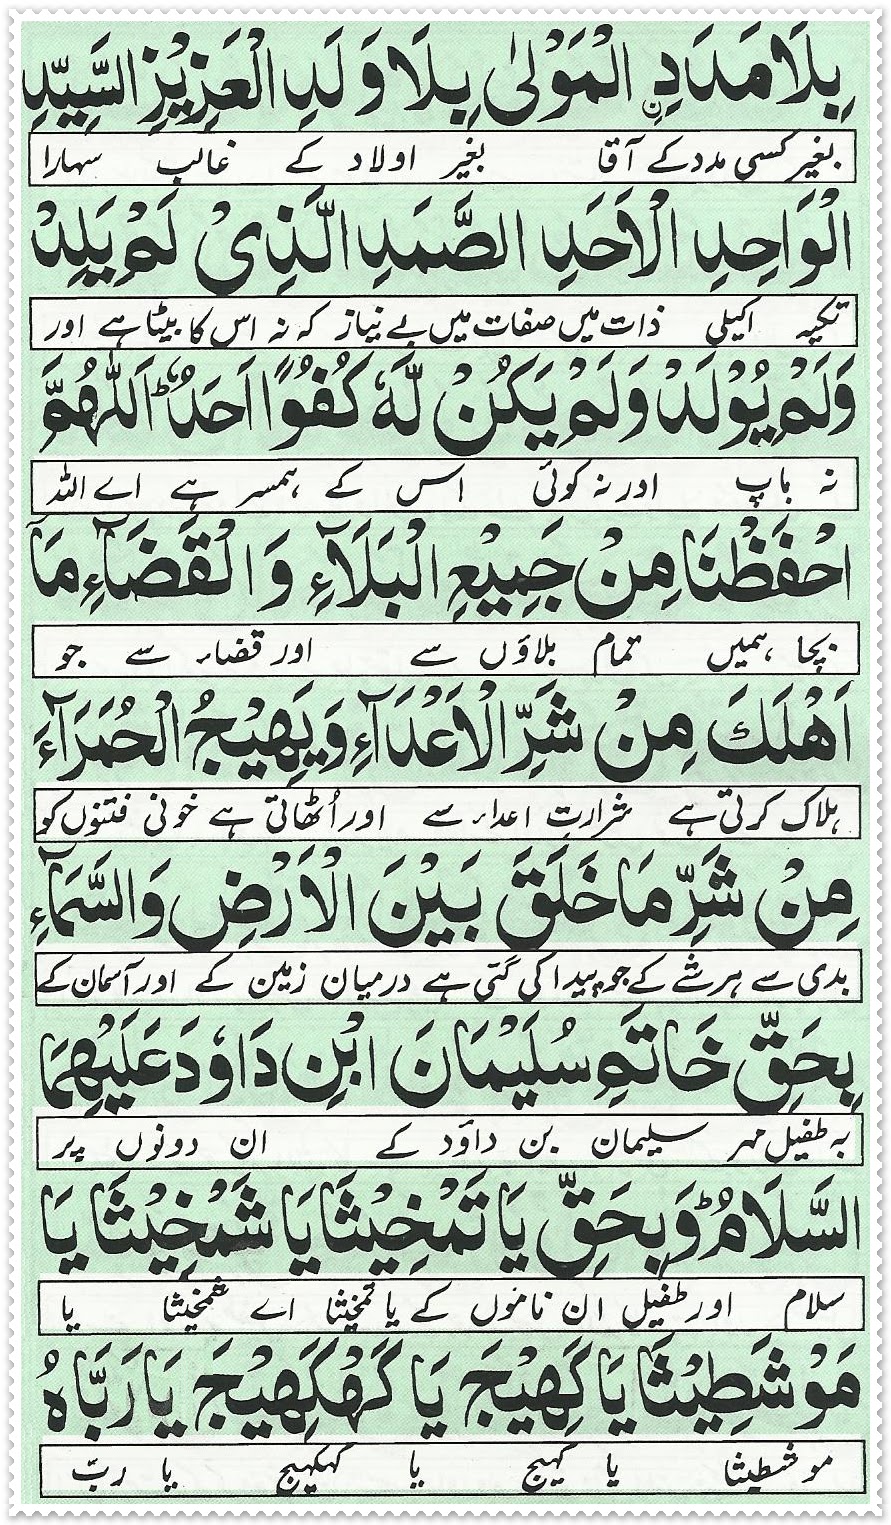 بِلَا مَدَدِنِ الْمَوْلٰی بِلَا وَلَدِ الْعَزِیْزِ السَّیِّدِ
بغیر کسی مدد کے آقا بغیر اولاد کے غالب سہارا
الْوَاحِدِ الْاَحَدِ الصَّمَدِ الَّذِیْ لَمْ یَلِدْ
تکیہ اکیلی ذات میں صفات میں بے نیاز کہ نہ اس کا بیٹا ہے اور
وَلَمْ یُوْلَدْ وَلَمْ یَکُنْ لَّهٗ کُفُوًا اَحَدٌ ؕ اَللّٰهُمَّ
نہ باپ اور نہ کوئی اس کے ہمسر ہے اے اللہ
احْفَظْنَا مِنْ جَمِیْعِ الْبَلَآءِ وَ الْقَضَآءِ مَا
بچا ہمیں تمام بلاؤں سے اور قضاء سے جو
اَهْلَكَ مِنْ شَرِّ الْاَعْدَآءِ وَیَهِیْجُ الْحُمَرَآءَ
ہلاک کرتی ہے شرارتِ اعداء سے اور اُٹھاتی ہے خونی فتنوں کو
مِنْ شَرِّ مَا خَلَقَ بَیْنَ الْاَرْضِ وَالسَّمَآءِ
بدی سے ہر شے کے جو پیدا کی گئی ہے درمیان زمین کے اور آسمان کے
بِحَقِّ خَاتَمِ سُلَیْمَانَ ابْنِ دَاوٗدَ عَلَیْهِمَا
بہ طفیل مہر سلیمان بن داؤد کے ان دونوں پر
السَّلَامُ ؕ وَبِحَقِّ یَا تَمْخِیْثَا یَا شَمْخِیْثَا یَا
سلام اور طفیل ان ناموں کے یا تمخیثا اے شمخیثا یا
مَوْشَطِیْثَا یَا كَهِیْجَ یَا كَهْكَهِیْجَ یَا رَبَّاهُ
موشطیثا یا کہیج یا کہکہیج یا ربّ